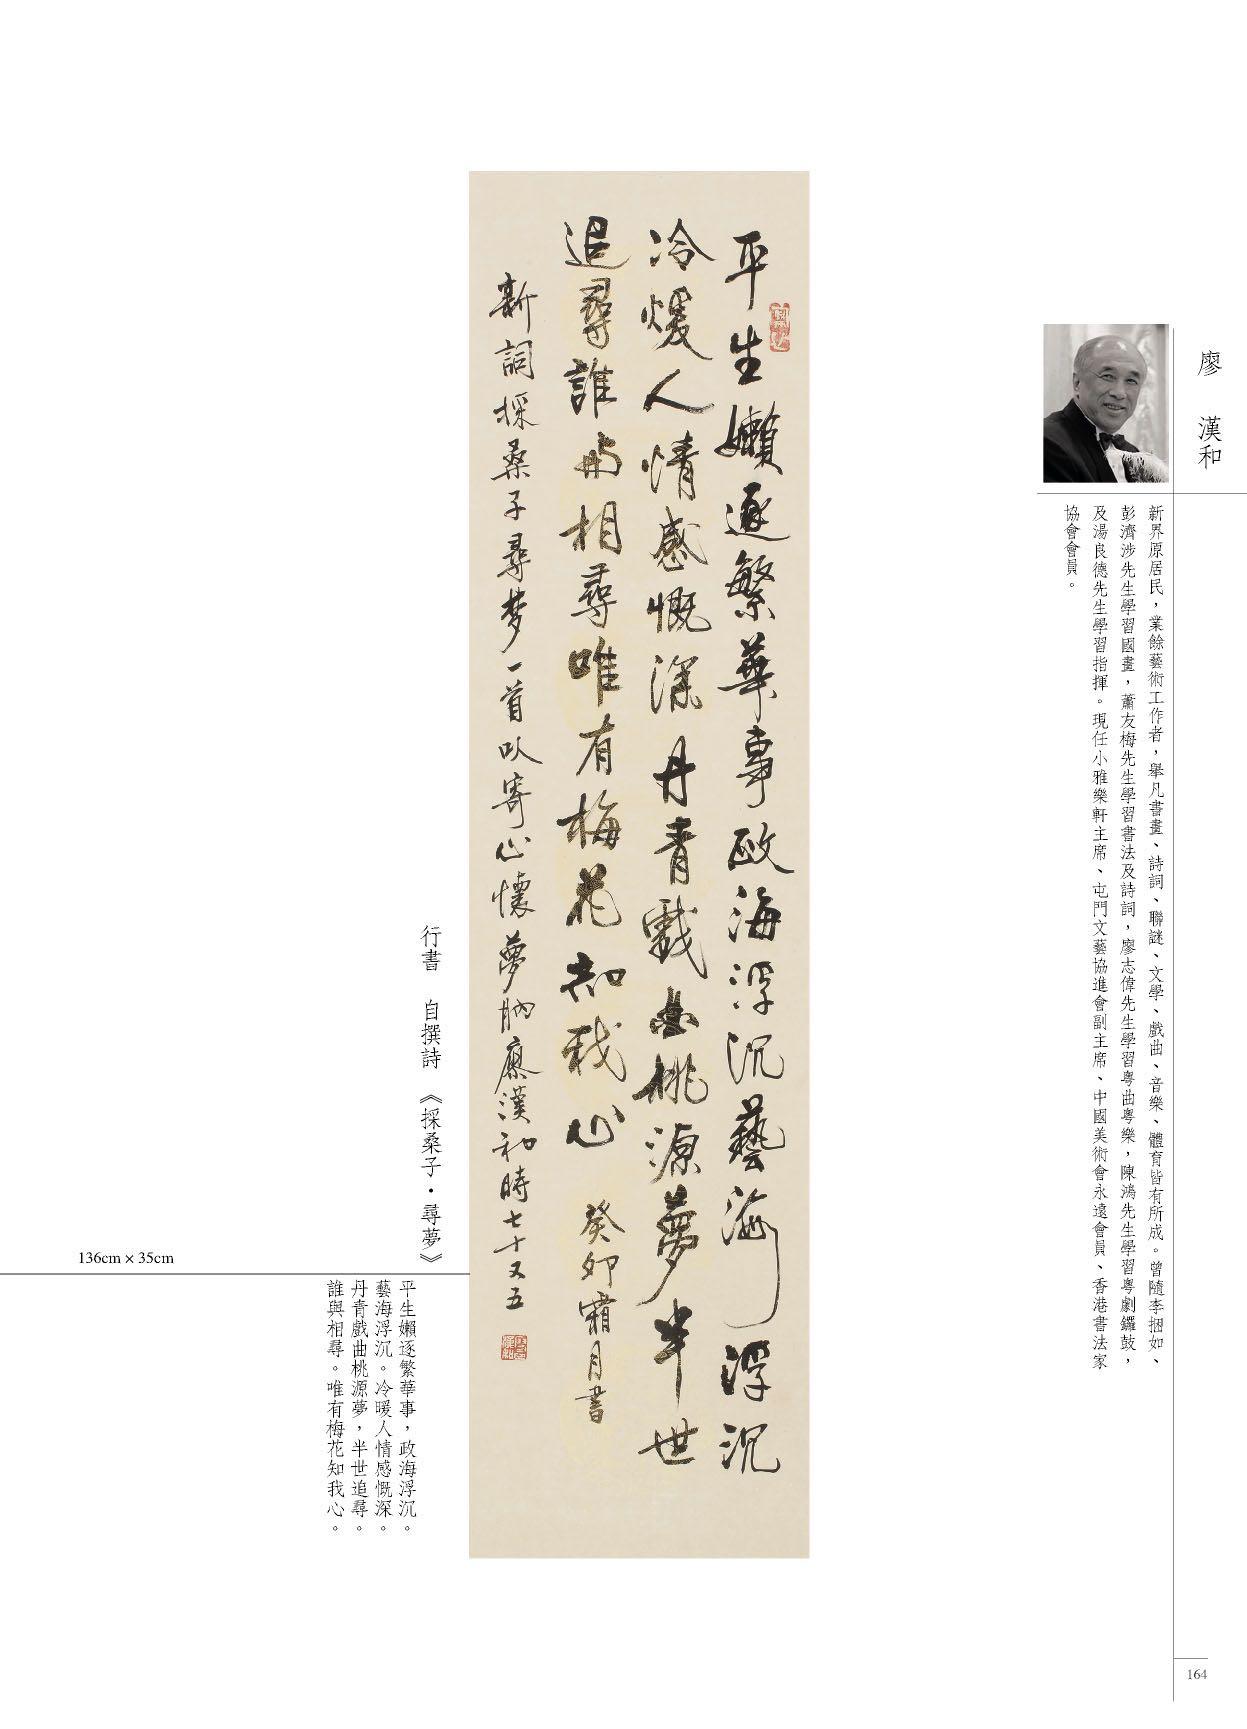 廖 漢和
新界原居民，業餘藝術工作者，舉凡書畫、詩詞、聯謎、文學、戲曲、音樂、體育皆有所成。曾隨李捆如、
彭濟涉先生學習國畫，蕭友梅先生學習書法及詩詞，廖志偉先生學習粵曲粵樂，陳鴻先生學習粵劇鑼鼓，
及湯良德先生學習指揮。現任小雅樂軒主席、屯門文藝協進會副主席、中國美術會永遠會員、香港書法家
協會會員。
平生嬾逐繁華事政海浮沉藝海浮沉
冷煖人情感慨深丹青戲曲桃源夢半世
追尋誰與相尋唯有梅花知我心 癸卯霜月書
新詞採桑子尋梦一首以寄心懷 夢
廖漢和時七十又五
行書 自撰詩 《採桑子·尋夢》
136cm × 35cm
平生嬾逐繁華事，政海浮沉。
藝海浮沉。冷暖人情感慨深。
丹青戲曲桃源夢，半世追尋。
誰與相尋。唯有梅花知我心。
164